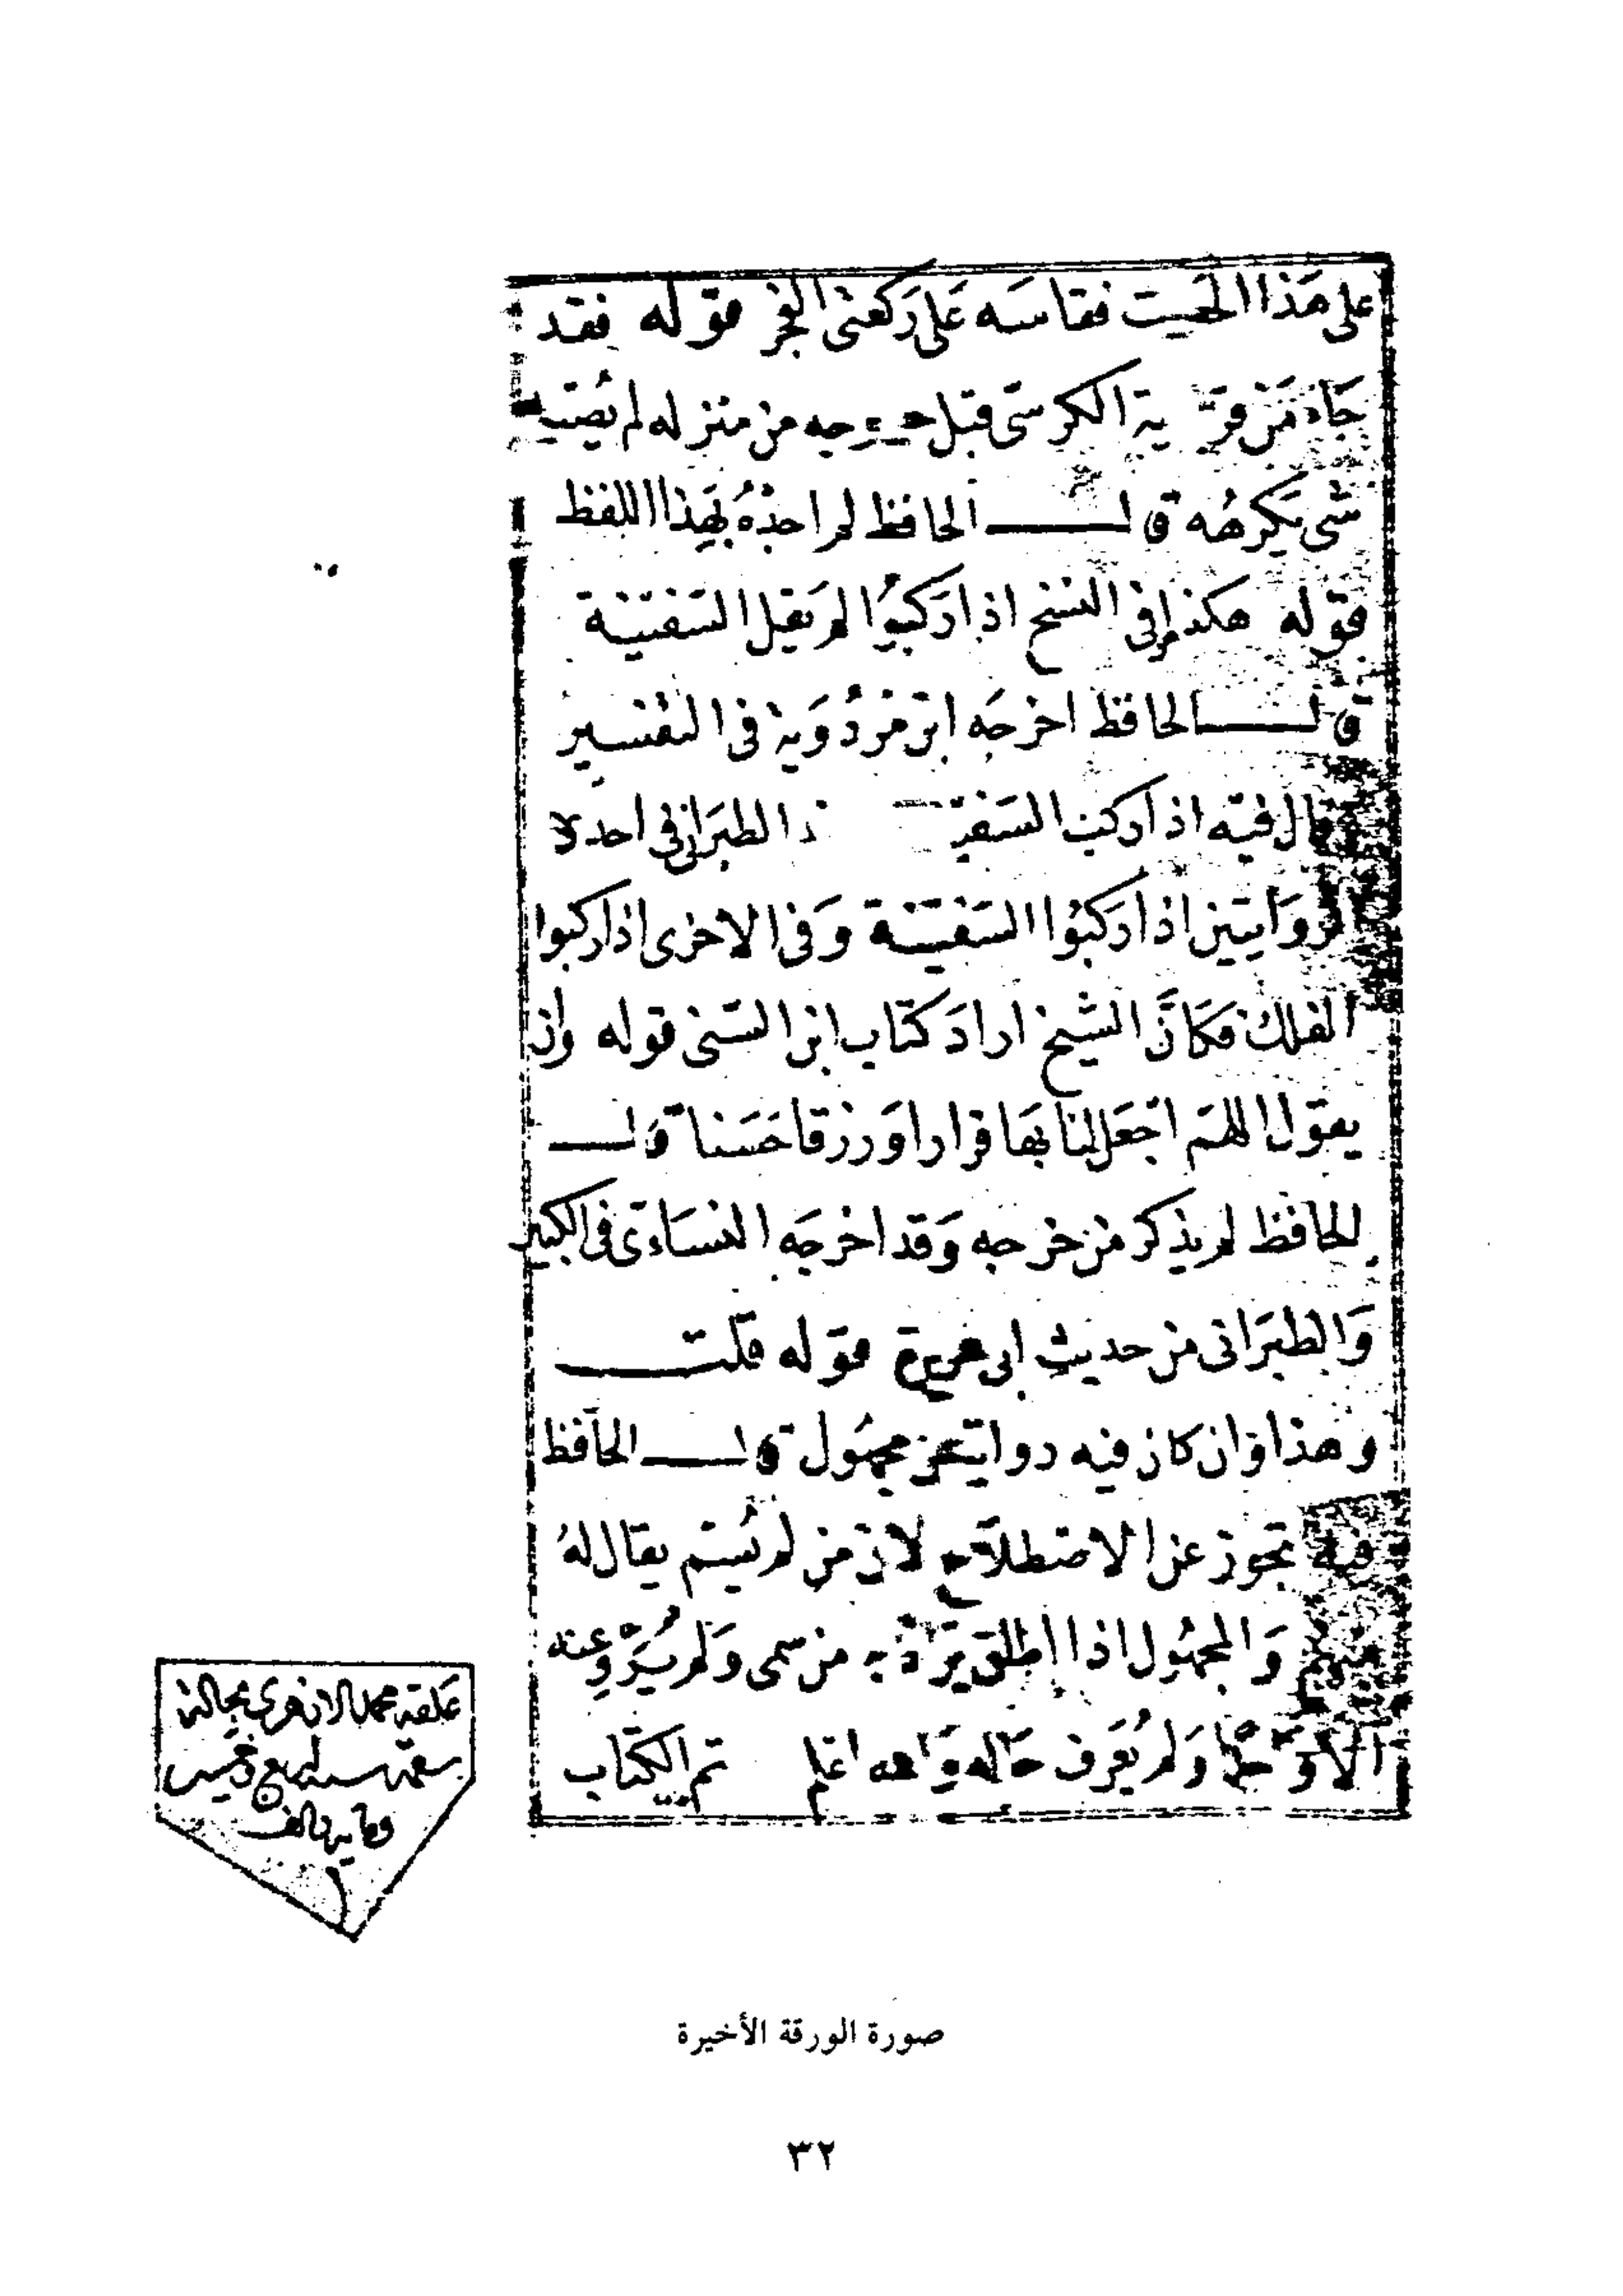 على هذا الحديث فقاسه على ركعتى الفجر قوله فقد
جاء من قرا ية الكرسى قبل خروجه من منزله لم يصبه
شى يكرهه قال الحافظ لم اجده بهذا اللفظ
قوله هكذا فى النسخ اذا ركبوا لم يقل السفينة
قال الحافظ اخرجه ابن مردويه فى التفسير
وقال فيه اذا ركب السفينة الطبرانى فى احدى
الروايتين اذا ركبوا السفينة وفى الاخرى اذا ركبوا
الفلك فكان الشيخ اراد كتاب ابن السنى قوله وان
يقول اللهم اجعل لنا بها قرارا ورزقا حسنا قال
الحافظ لم يذكر من خرجه وقد اخرجه النساءى فى الكبير
والطبرانى من حديث ابى هريرة قوله قلت
وهذا وان كان فيه رواية عن مجهول قال الحافظ
فيه تجوز عن الاصطلاح لان من لم يسم يقال له
مبهم والمجهول اذا اطلق يراد به من سمى ولم يرو عنه
الا واحد ولم يعرف حاله والله اعلم تم الكتاب
علقه محمد
سنة سبع وخمسين
وماية والف
صورة الورقة الأخيرة
٣٢